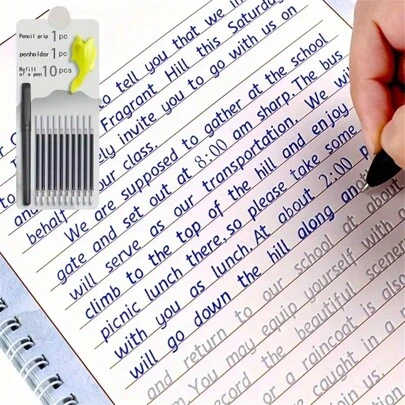 Pencil grip 1 pc
penholder 1 pc
Refill of a pen 10 pcs
to tell you that we
Fragrant Hill this Saturday
invite you to go with us on
our class.
behalf
We are supposed to gather at the school
gate and set out at 8:00 am sharp. The bus
will serve as our transportation. We wi
climb to the top of the hill and enjoy
picnic lunch there, so please take some
with you as lunch. At about 2:00 p
will go down the hill along another
and return to our school at about
You may equip yourself with a
record the beautiful scener
or a raincoat is also
be caught in a
Join us.